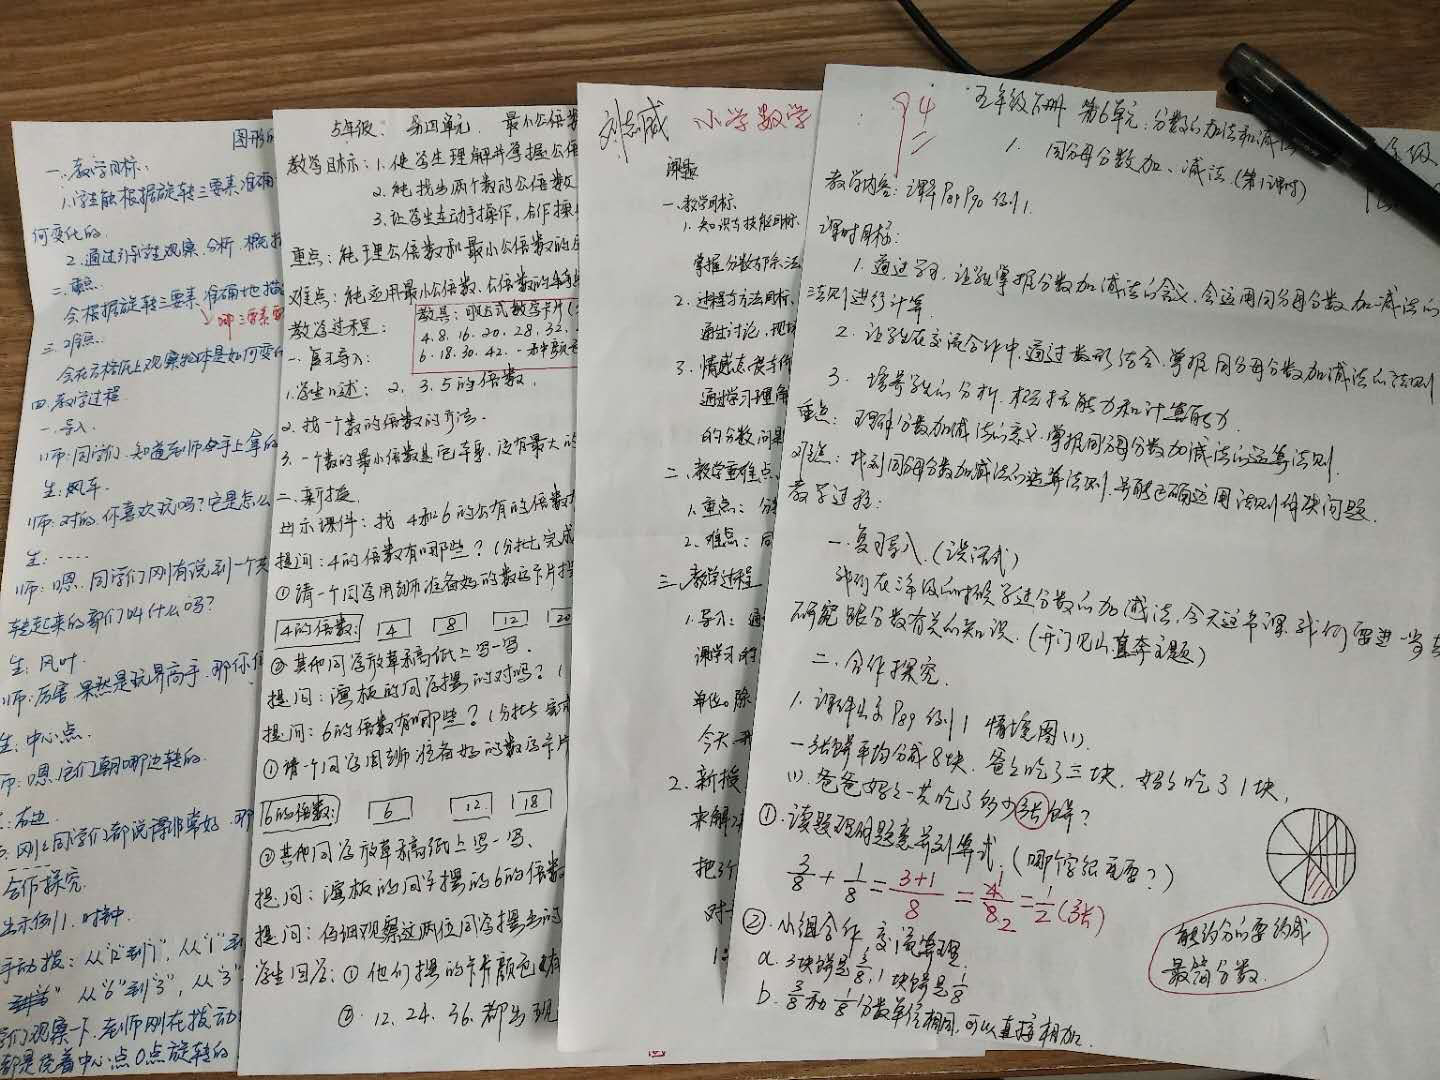 图形的
一、教学目标.
1.学生能根据旋转三要素准确
何变化的.
2.通过引导学生观察.分析.概括
二.重点.
会根据旋转三要素,准确地描
哪三要素
三.难点.
会在方格纸上观察物体是如何变化
四.教学过程.
一.导入.
师:同学们,知道老师今手上拿的
生:风车.
师:对的,你喜欢玩吗?它是怎么
生:.....
师:嗯.同学们刚有说到一个
转起来的都们叫什么吗?
生:风叶.
师:厉害.果然是玩界高手.那你们
生:中心点.
师:嗯.它们朝哪边转的.
:右边.
:刚上同学们都说得非常好.那
合作探究.
出示例1.时钟.
手动拨:从"12"到"1",从"1"到
从"6"到"3",从"3"
们观察一下.老师刚在拨动
都是绕着中心点O点旋转的
5年级、第四单元.最小公倍数
教学目标:1.使学生理解并掌握公倍
2.能找出两个数的公倍数
3.让学生在动手操作,合作操
重点:能理公倍数和最小公倍数的
难点:能应用最小公倍数.公倍数的
教学过程:
教具:吸式数字卡片(
4.8.16.20.28.32.
6.18.30.42.
一.复习导入:
1.学生口述:2.3.5的倍数.
2.找一个数的倍数的方法.
3.一个数的最小倍数是它本身,没有最大的
二.新授.
出示课件:找4和6的公有的倍数
提问:4的倍数有哪些?(分批完成
①请一个同学用老师准备好的数字卡片摆
4的倍数: 4 8 12 20
②其他同学放草稿纸上写一写.
提问:演板的同学摆的对吗?(
提问:6的倍数有哪些?(分批完成
①请一个同学用老师准备好的数字卡片
6的倍数: 6 12 18
②其他同学放草稿纸上写一写.
提问:演板的同学摆的6的倍数
提问:仔细观察这两位同学摆出的
学生回答:①他们摆的卡片颜色
②.12.24.36.都出现
小学数学
课题
一.教学目标
1.知识与技能目标
掌握分数加减法
2.过程与方法目标.
通过讨论,
3.情感态度
通过学习理解
的分数问题
二.教学重难点
1.重点:分
2.难点:同
三.教学过程
1.导入:通
课学习的
单位。除
今天
2.新授
来解
把3个
对
94
五年级下册 第6单元:分数的加法和减法
1.同分母分数加、减法.(第1课时)
年级
教学内容:课本P89 P90 例1.
课时目标:
1.通过学习,让学生掌握分数加减法的含义,会运用同分母分数加减法的
法则进行计算.
2.让学生在交流合作中,通过数形结合,掌握同分母分数加减法的法则
3.培养学生的分析.概括能力和计算能力.
重点:理解分数加减法的意义,掌握同分母分数加减法的运算法则.
难点:找到同分母分数加减法的运算法则,并能正确运用法则解决问题.
教学过程:
一.复习导入.(谈话式)
我们在三年级的时候学过分数的加减法,今天这节课我们要进一步
研究跟分数有关的知识.(开门见山直奔主题)
二.合作探究.
1.课件出示P89例1情境图(1).
一张饼平均分成8块.爸爸吃了三块.妈妈吃了1块,
(1).爸爸妈妈一共吃了多少张饼?
①.读题理明题意并列算式.(哪个字很重要?)
3/8+1/8=3+1/8=4/8=1/2(张)
1
2
②.小组合作,交流算理.
a.3块饼是3/8,1块饼是1/8
b.3/8和1/8分数单位相同,可以直接相加.
能约分的要约成
最简分数.